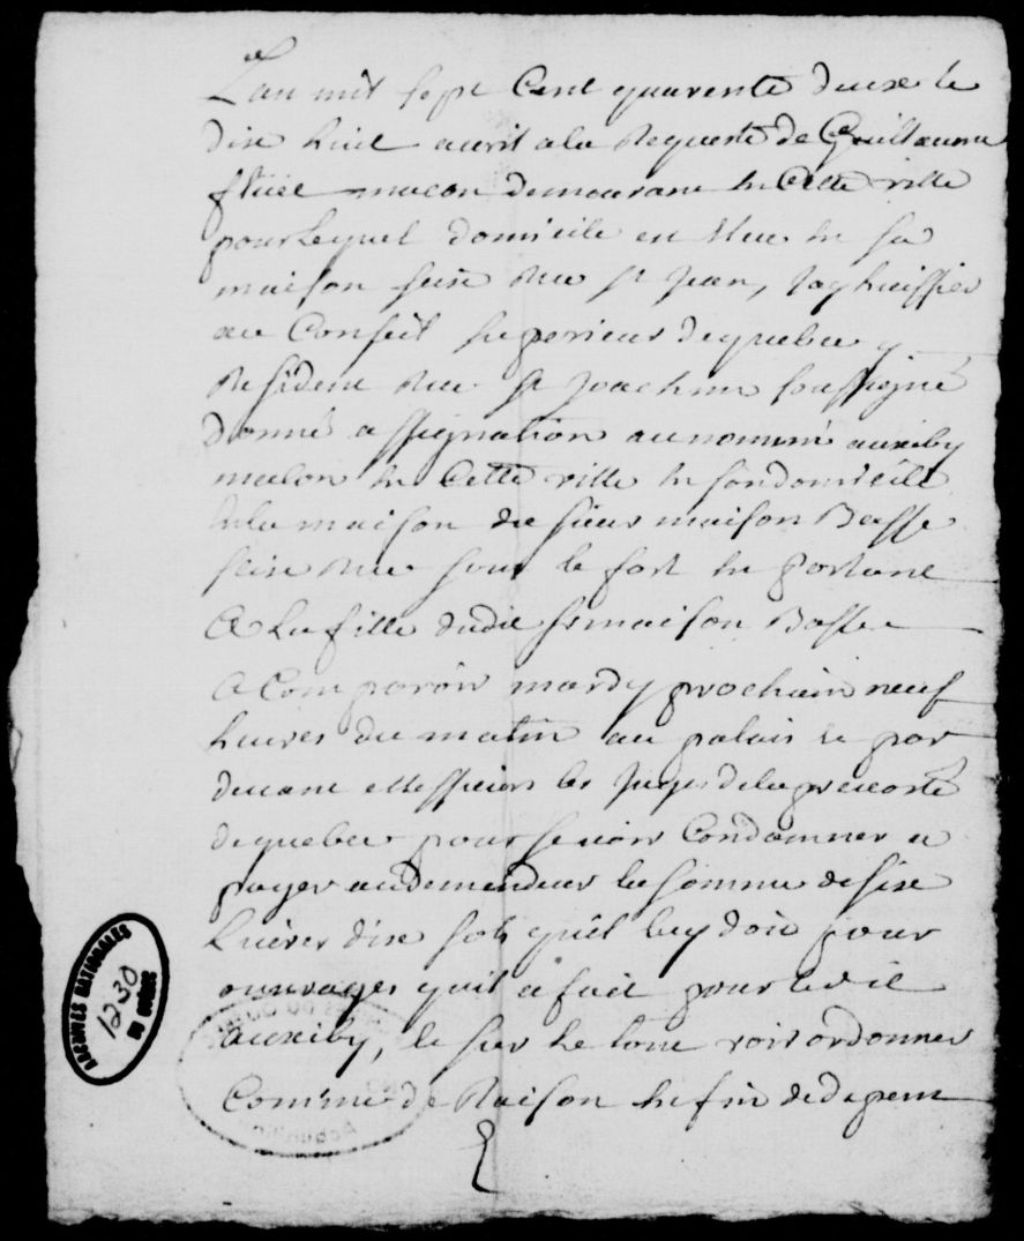 L'an mil sept Cent quarente deuxe le
dixe huit avril ala Requeste de Guillaume
macon demeurant en Cette ville
pourlequel domicile est Eleu en sa
maison seize Rue st Jean, Jay huissier
au Conseil superieur dequebec y
Resident Rue st Joachim soussigné
donné assignation aunommé auxiby
malon en Cette ville en sondomicile
enla maison du sieur maison Basse
seize Rue sous le fort en parlant
A La fille dudit sr maison Basse
A Comparoir mardy prochain neuf
heures du matin au palais et par
devant Messieurs les Juges delaprevosté
dequebec pour sevoir Condamner a
payer audemandeur la somme desixe
Livres dixe sols quil luy doit pour
ouvrages quil a fait pour ledit
auxiby, et sur Le tout voir ordonner
Comme de Raison en fin de depent
ARCHIVES NATIONALES
1230
DU QUÉBEC